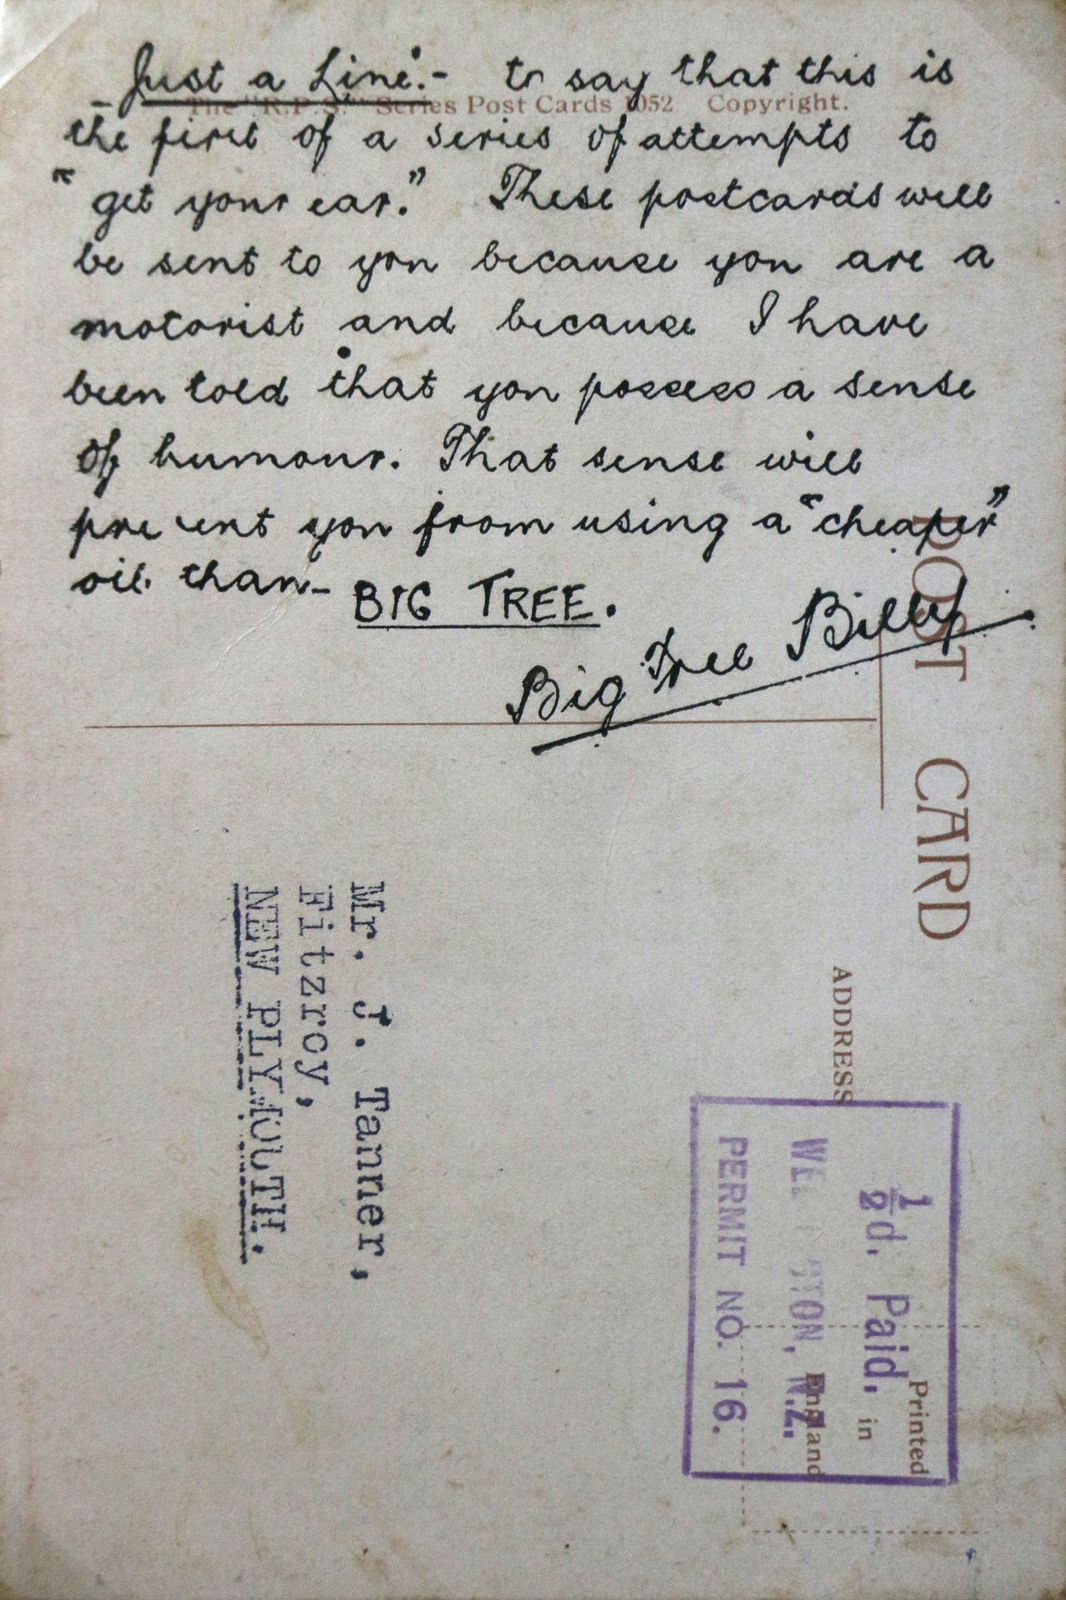 Just a Line:- to say that this is
The "R.P.S." Series Post Cards 1052 Copyright.
the first of a series of attempts to
"get your ear." These postcards will
be sent to you because you are a
motorist and because I have
been told that you possess a sense
of humour. That sense will
prevent you from using a "cheaper"
oil than-
BIG TREE.
Big Tree Billy
POST CARD
ADDRESS
Mr. J. Tanner,
Fitzroy,
NEW PLYMOUTH.
1/2d. Paid.
WELLINGTON, N.Z.
PERMIT NO. 16.
Printed
in
England